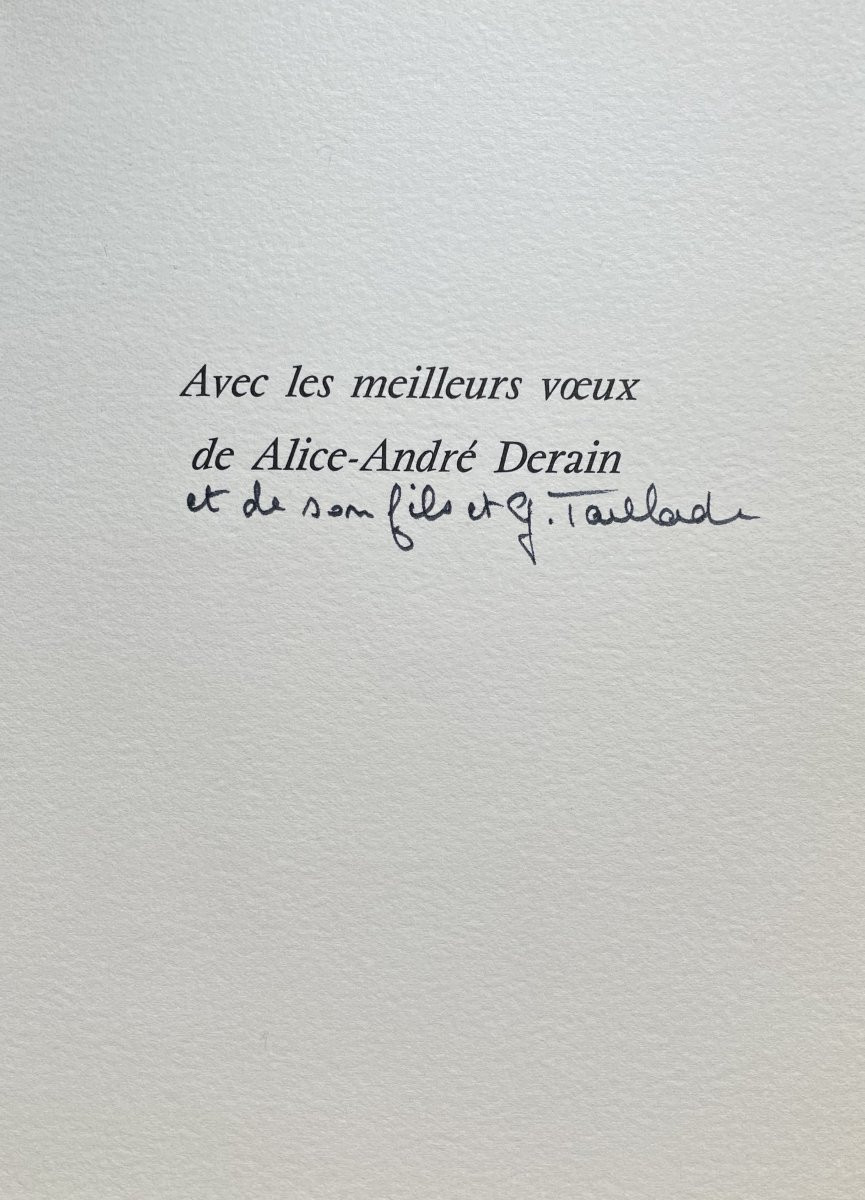 Avec les meilleurs vœux
de Alice-André Derain
et de son fils et G. Taillade